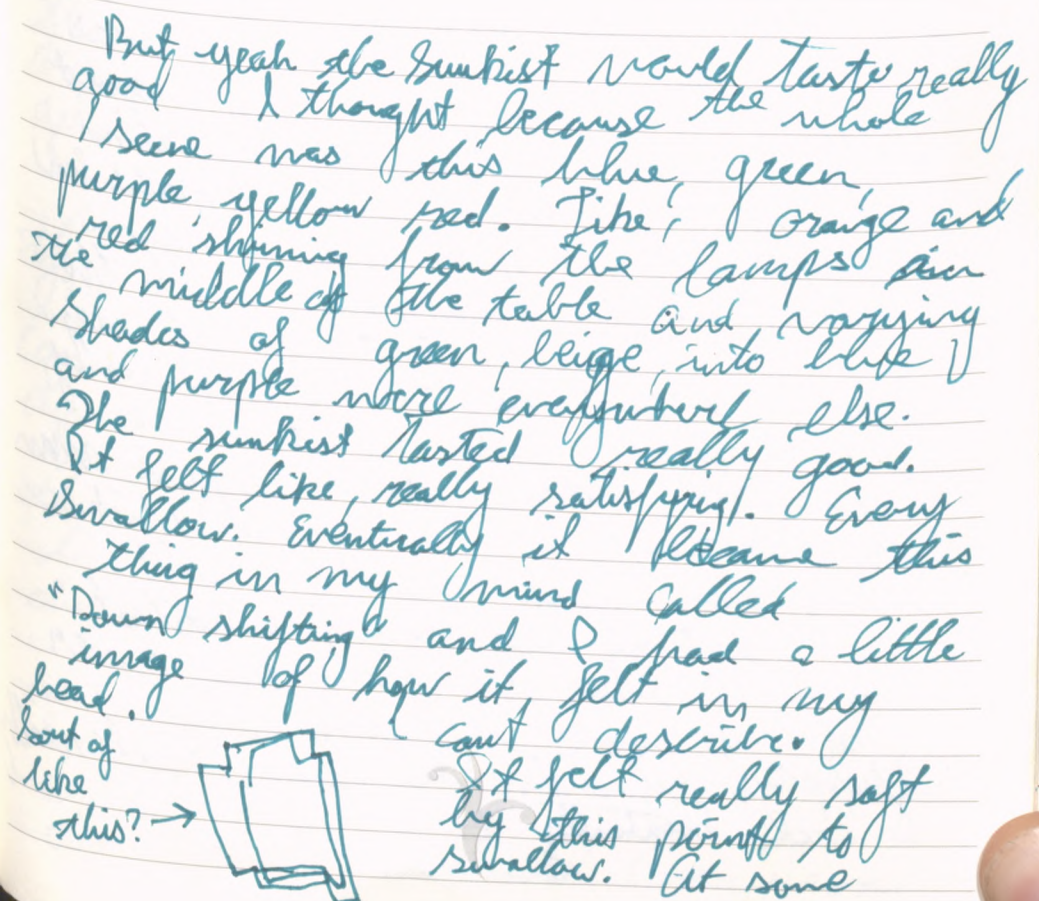 But yeah the Sunkist would taste really
good I thought because the whole
scene was this blue, green,
purple, yellow red. Like, orange and
red shining from the lamps in
the middle of the table and varying
shades of green, beige, into blue
and purple more everywhere else.
The sunkist tasted really good.
It felt like, really satisfying. Every
swallow. Eventually it became this
thing in my mind called
"Down shifting" and I had a little
image of how it felt in my
head.
Sort of
like
this? →
can't describe.
It felt really soft
by this point to
swallow. At some